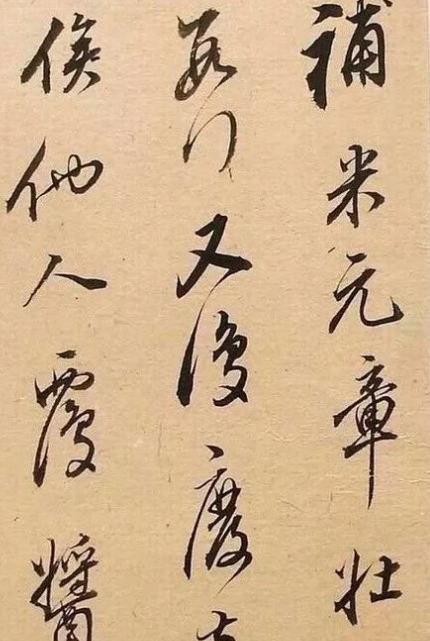 補米元章壯
數行又復廢
俟他人覆醬